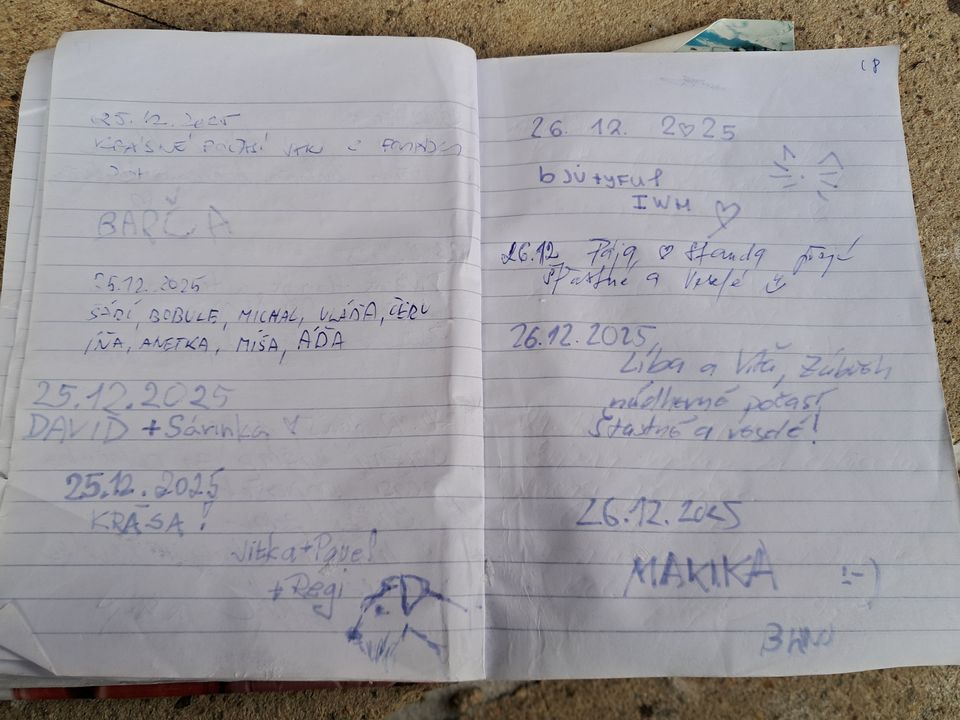 25.12.2025
KRÁSNÉ POČASÍ
BÁRČA
25.12.2025
SÁRÍ, BOBULE, MICHAL, VLÁĎA, ČERU
ÍŇA, ANETKA, MÍŠA, ÁĎA
25.12.2025
DAVID + Sárinka
25.12.2025
KRÁSA!
Jitka + Pavel
+ Regi
18
26. 12. 2025
bjútyFUl
IWM ♡
26.12 Pája ♡ Standa přejí
Šťastné a Veselé
26.12.2025
Líba a Víťa, Zábřeh
nádherné počasí
Šťastné a veselé!
26.12.2025
MAKIKA :-)